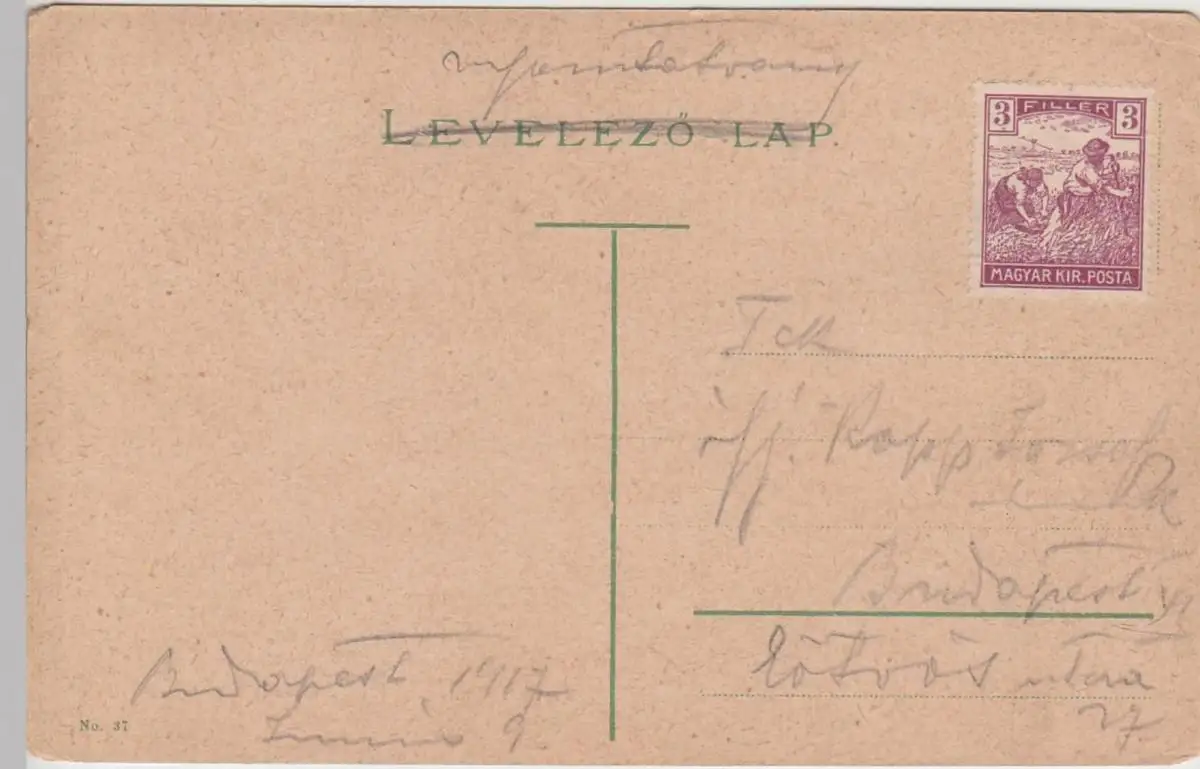 nyomtatvány
LEVELEZŐ LAP.
3 FILLER 3
MAGYAR KIR. POSTA
Tek
ifj. Rapp József
Budapest VI
Eötvös utca
27.
Budapest 1917
Junius 9.
No. 37